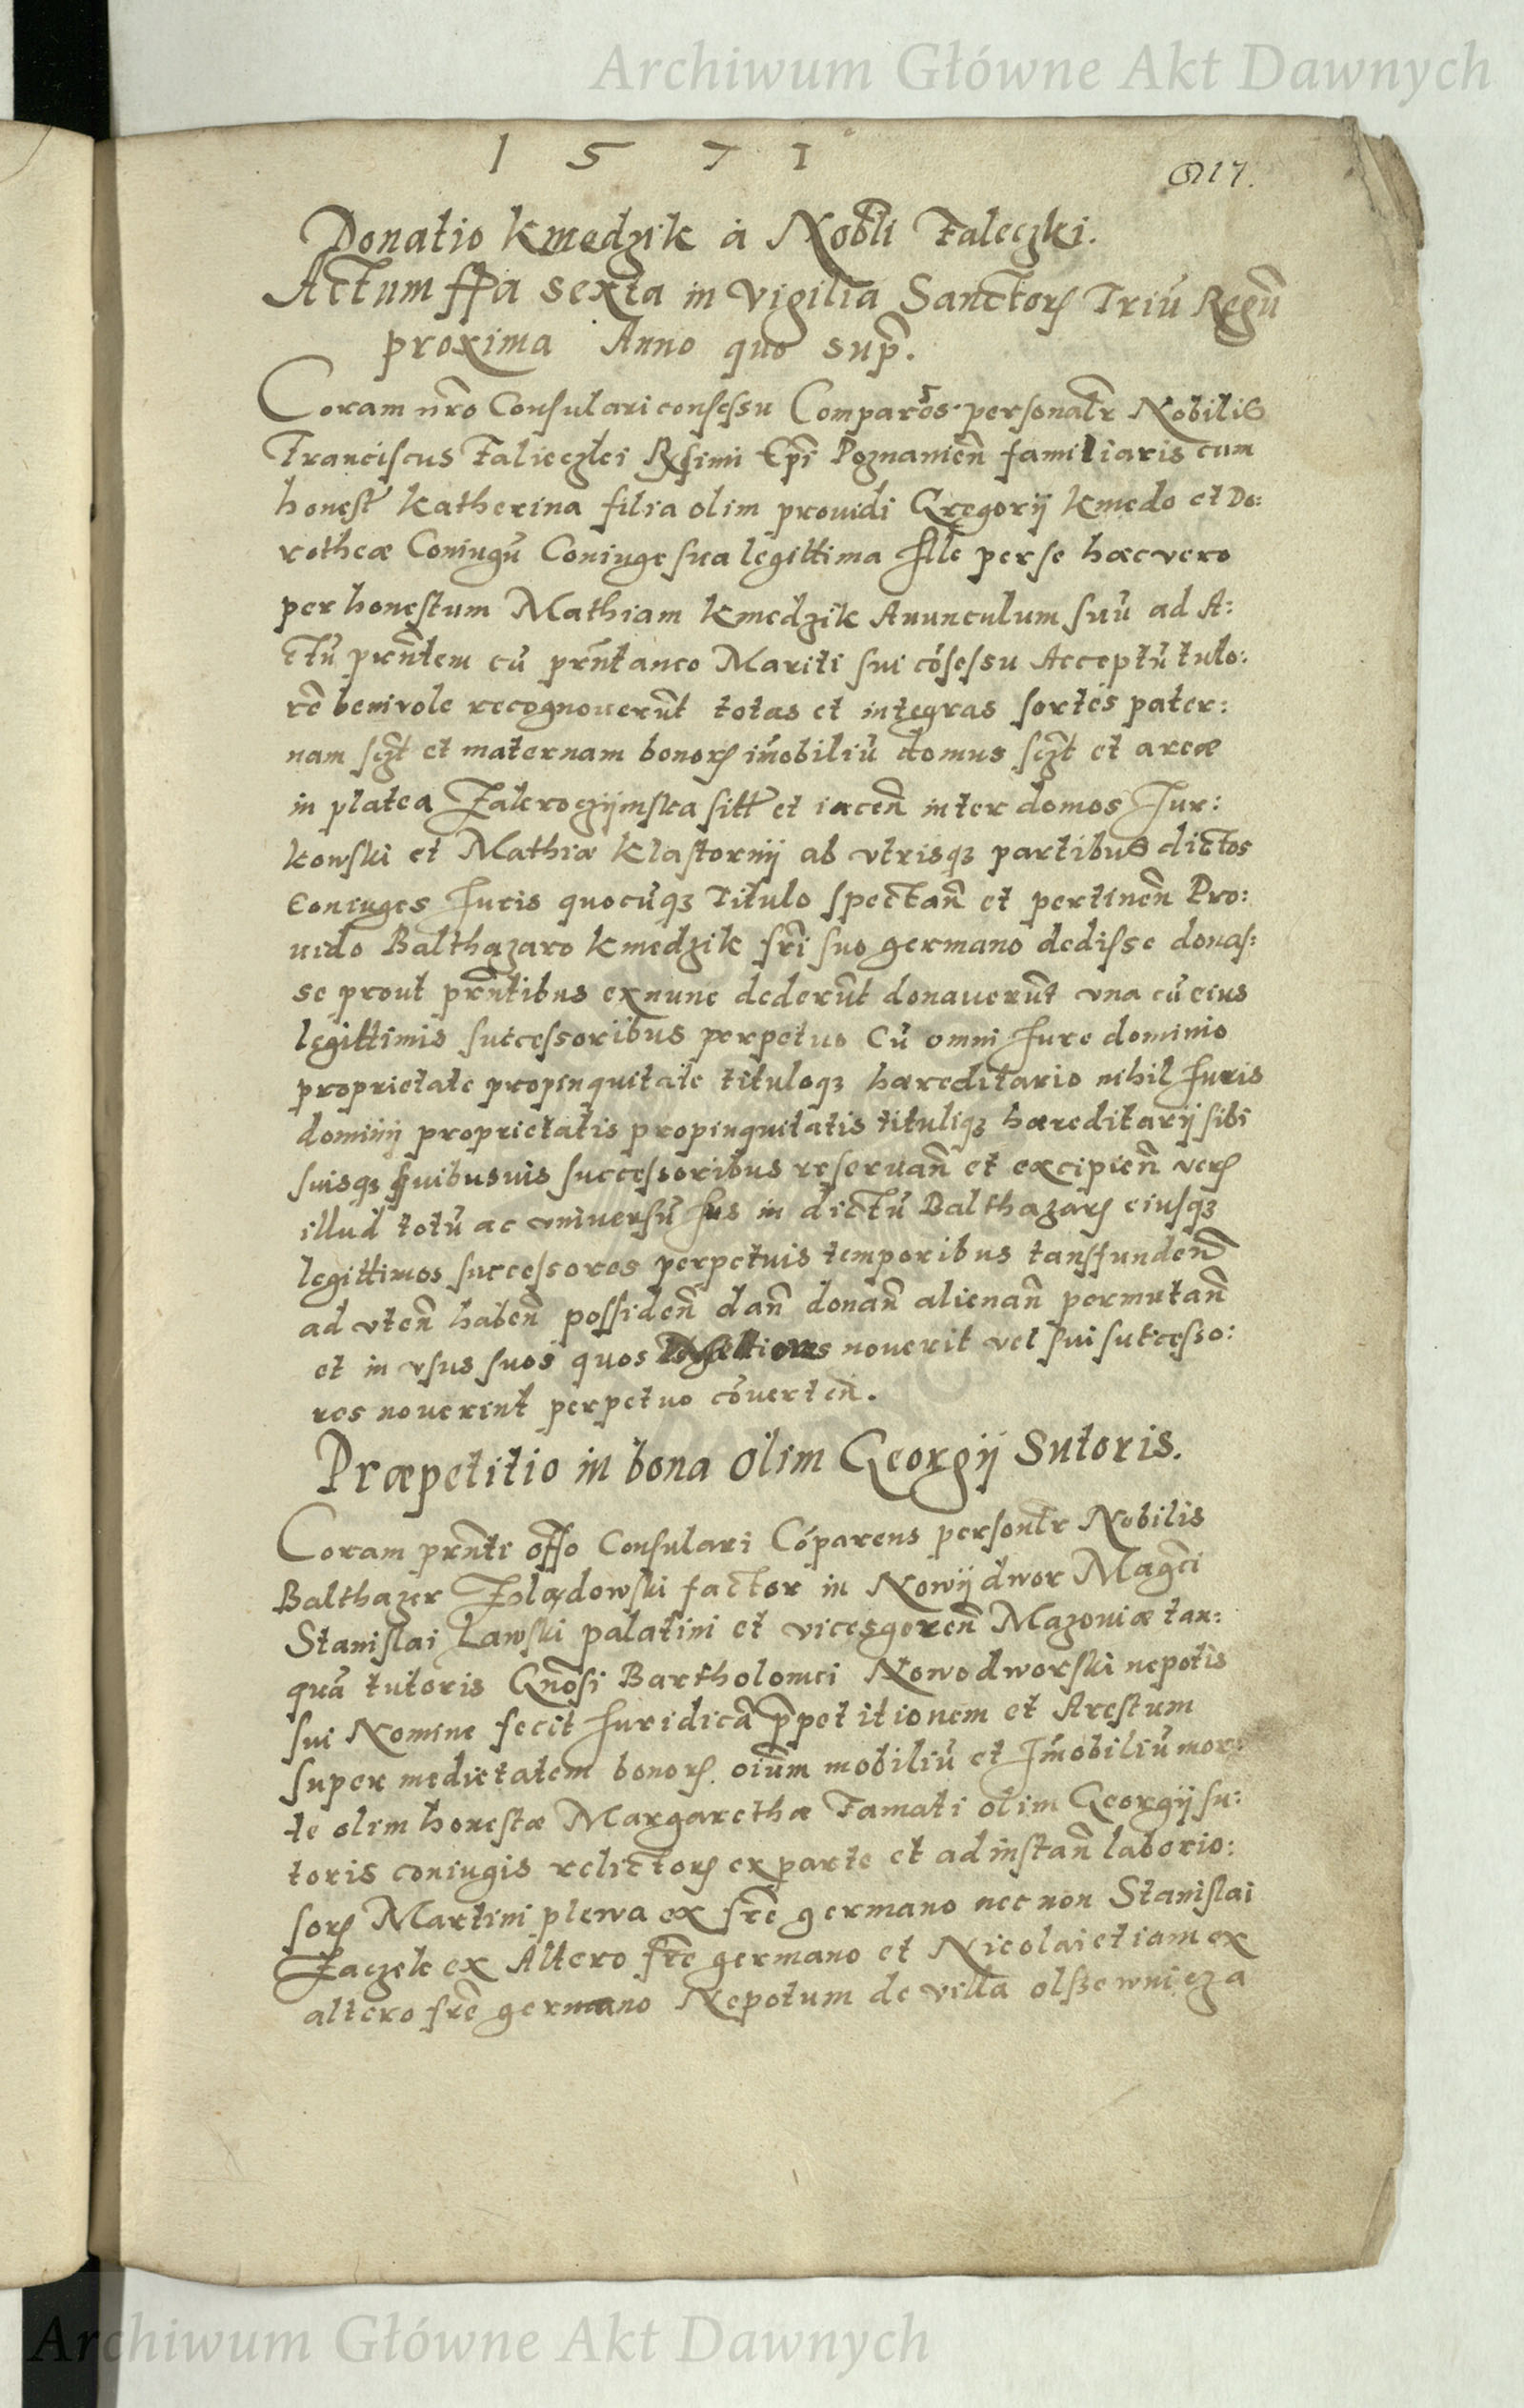 Archiwum Główne Akt Dawnych
1 5 7 1
217.
Donatio Kmedzik à Nobłi Faleczki.
Actum ffa sexta in vigilia Sanctorꝝ Triū Regū
proxima Anno quo supᷓ.
Coram nr̃o Consulari consessu Compartẽs personalr̃ Nobilis
Franciscus Falieczki Rssimi Epĩ Poznanieñ familiaris cum
honest Katherina filia olim prouidi Gregorij Kmedo et Do:
rotheæ Coniugū Coniuge sua legittima Ille per se hæc vero
per honestum Mathiam Kmedzik Auunculum suū ad A:
ctū prñtem cū prñtaneo Mariti sui cōsessu Acceptū tuto:
rē beniuole recognouerūt totas et integras sortes pater:
nam sczt et maternam bonorꝝ im̄obiliū domus sczt et areæ
in platea Zakroczijmska sitt et iaceñ inter domos Jur:
kowski et Mathiæ Klastornij ab vtrisqꝫ partibus dictos
Coniuges Iuris quocūqꝫ Titulo spectañ et pertineñ Pro:
uido Balthazaro Kmedzik frĩ suo germano dedisse donas:
se prout prñtibus ex nunc dederūt donauerūt vna cū eius
legittimis successoribus perpetuo Cū omni Iure dominio
proprietate propinquitate tituloqꝫ hæreditario nihil Iuris
dominij proprietatis propinquitatis tituliqꝫ hæreditarij sibi
suisqꝫ quibusuis successoribus reseruañ et excipieñ verꝝ
illud totū ac vniuersū Ius in dictū Balthazarꝝ eiusqꝫ
legittimos successores perpetuis temporibus tansfundeñ
ad vteñ habeñ possideñ dañ donañ alienañ permutañ
et in vsus suos quos nouerit vel sui successo:
res nouerint perpetuo cōuerteñ.
Præpetitio in bona olim Georgij Sutoris.
Coram prñti offo Consulari Cōparens personlr̃ Nobilis
Balthazer Zolądowski factor in Nowij dwor Magci
Stanislai Lawski palatini et vicesgereñ Mazouiæ tan:
quā tutoris Gñosi Bartholomei Nowodworski nepotis
sui Nomine fecit Iuridicā p̄petitionem et Arestum
super medietatem bonorꝝ oium̄ mobiliū et Im̄obiliū mor:
te olim honestæ Margarethæ Famati olim Georgij su:
toris coniugis relictorꝝ ex parte et ad instañ laborio:
sorꝝ Martini plewa ex fr̃e germano nec non Stanislai
Zaczek ex Altero fr̃e germano et Nicolai etiam ex
altero fr̃e germano Nepotum de villa olszewnicza
Archiwum Główne Akt Dawnych